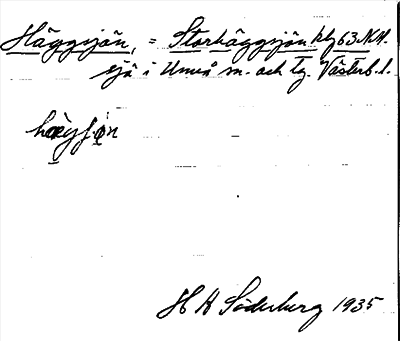 Häggsjön, = Storhäggsjön kbl 63 N.V.
sjö i Umeå sn. och tg. Västerb. l.
hæ̀yʃɵn
H A Söderberg 1935